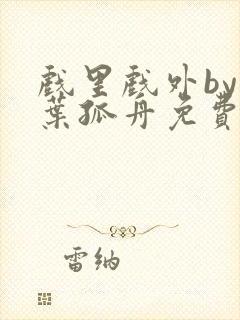 戲里戲外by
葉孤舟免費
雷納